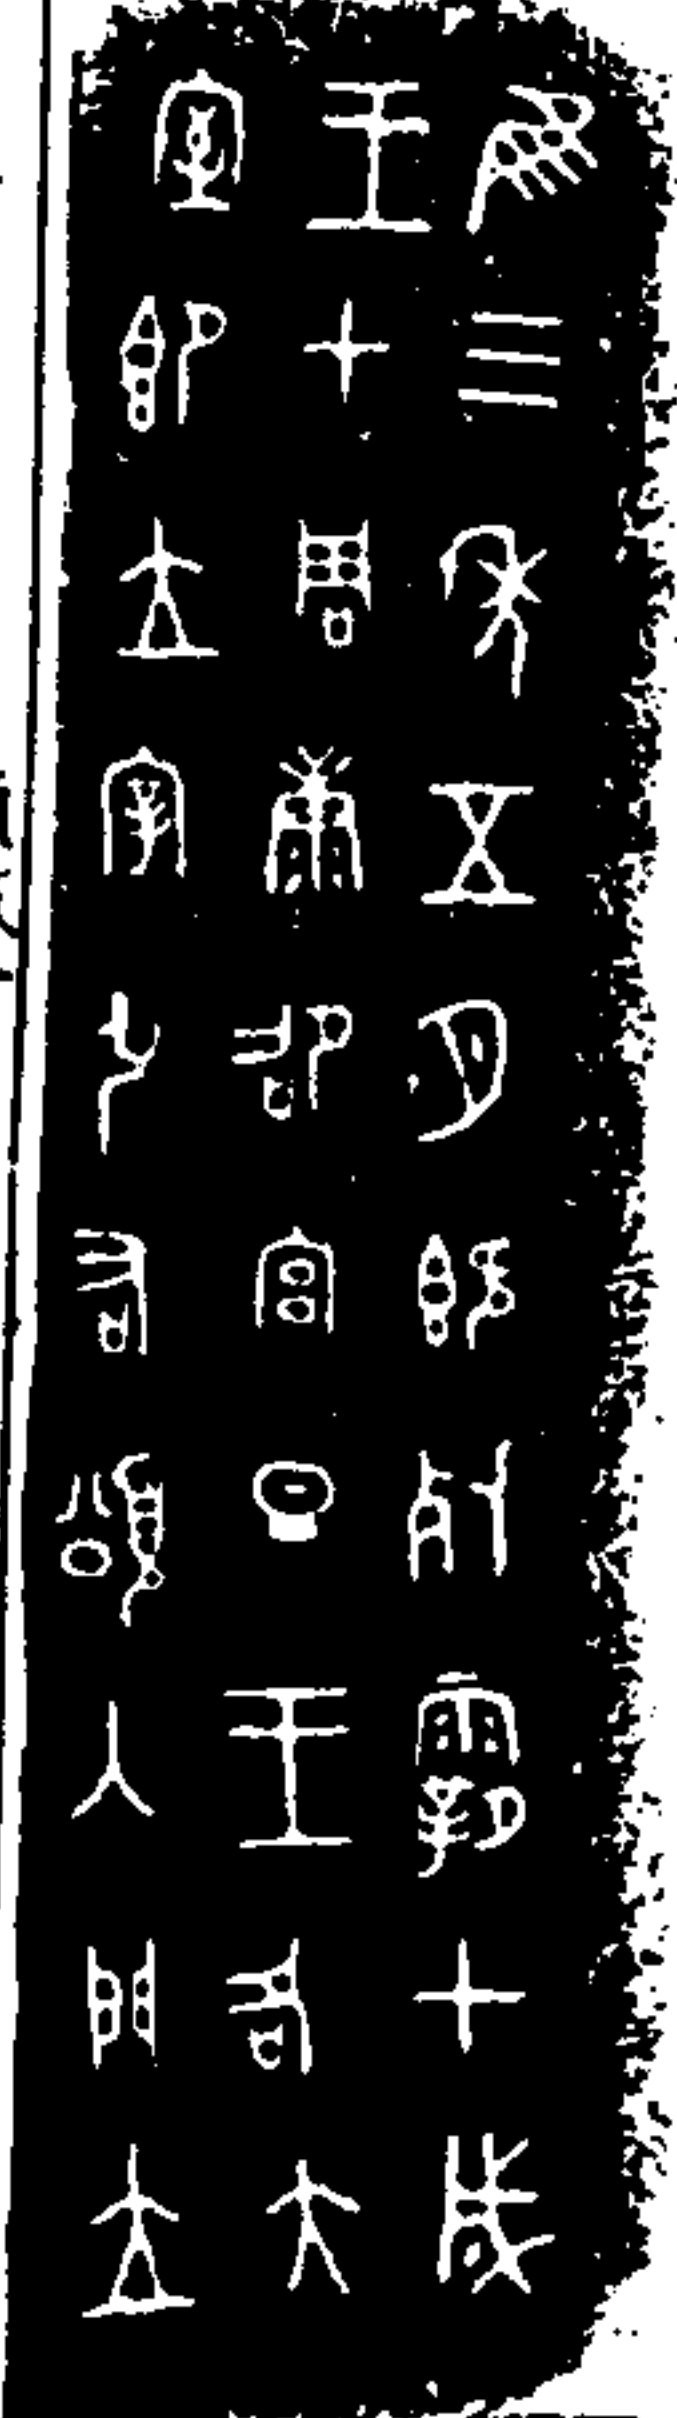 隹三年五月既死霸甲戌
王才周康卲宮旦王各大
室即立宰引右頌入門立